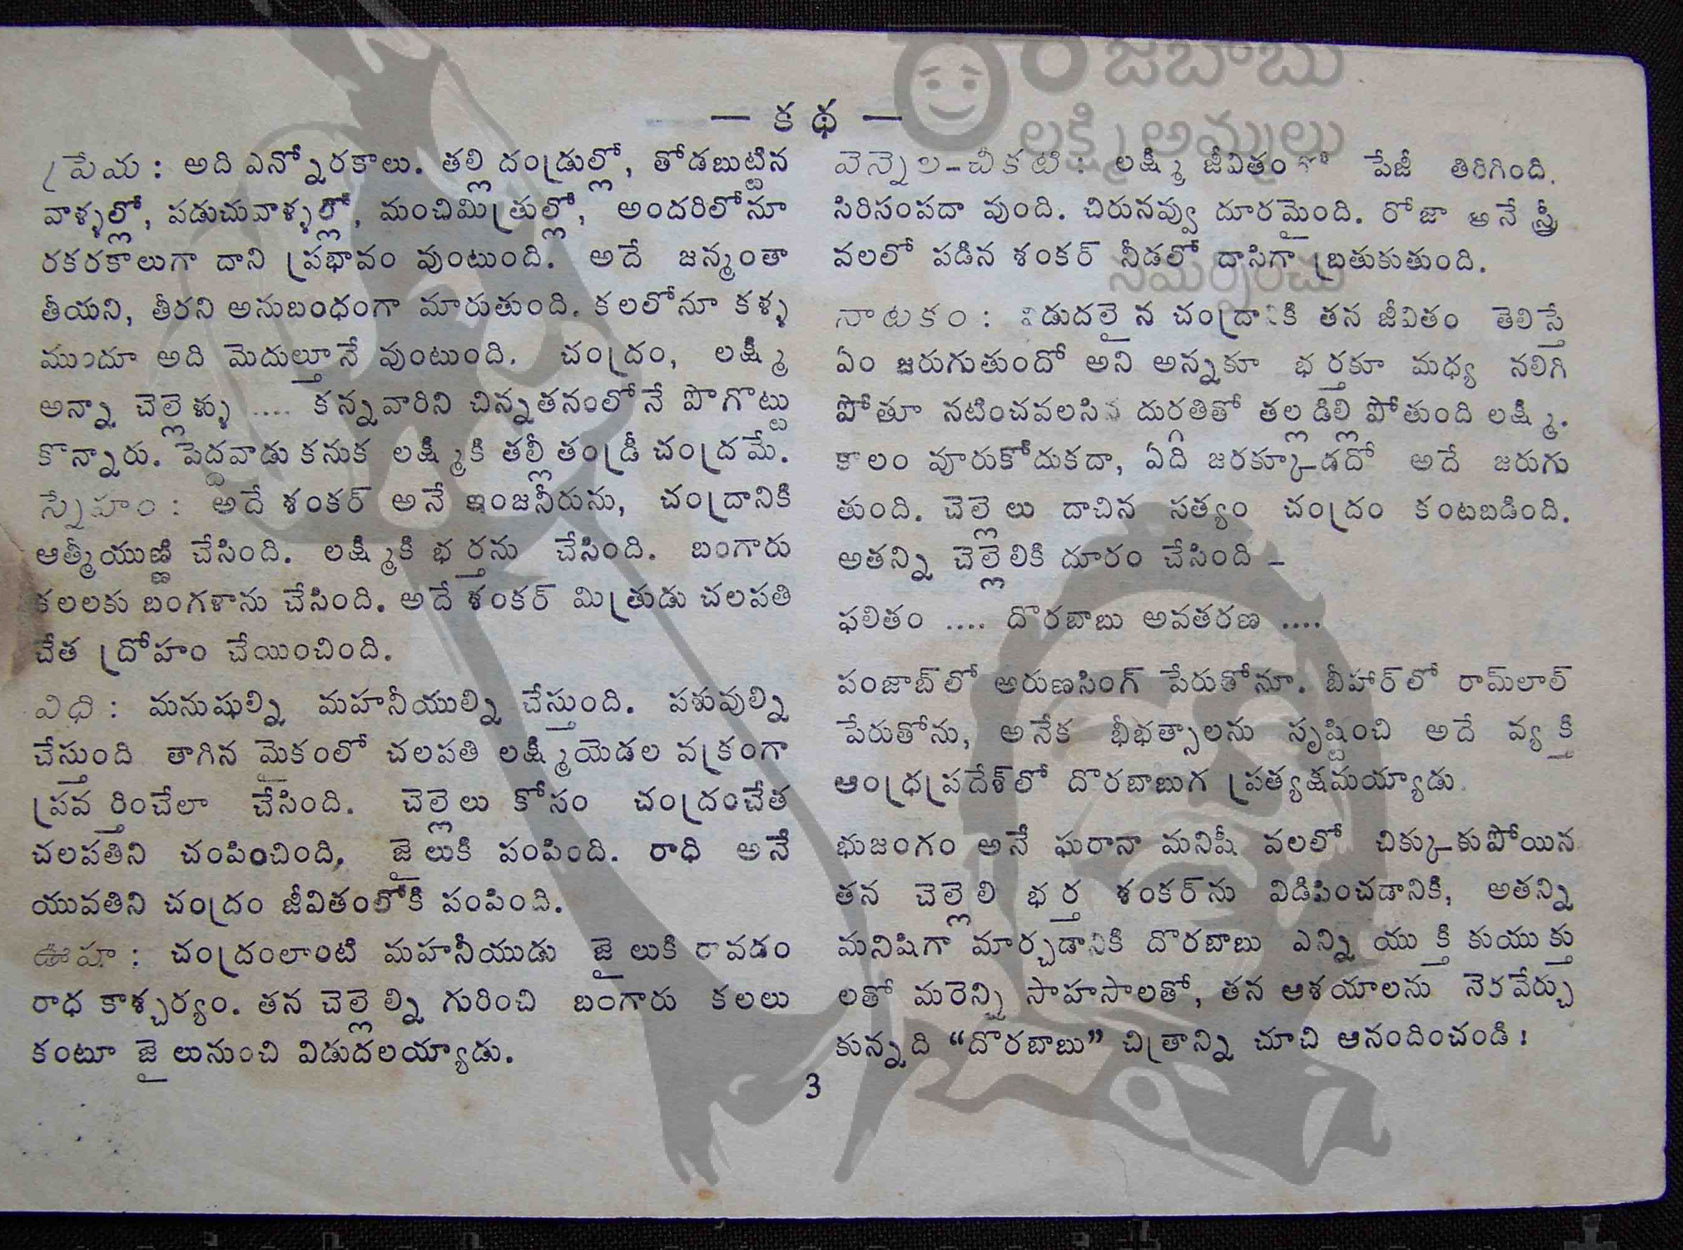 — కథ —
ప్రేమ : అది ఎన్నోరకాలు. తల్లిదండ్రుల్లో, తోడబుట్టిన
వాళ్ళల్లో, పడుచువాళ్ళల్లో, మంచిమిత్రుల్లో, అందరిలోనూ
రకరకాలుగా దాని ప్రభావం వుంటుంది. అదే జన్మంతా
తీయని, తీరని అనుబంధంగా మారుతుంది. కలలోనూ కళ్ళ
ముందూ అది మెదుల్తూనే వుంటుంది. చంద్రం, లక్ష్మి
అన్నా చెల్లెళ్ళు .... కన్నవారిని చిన్నతనంలోనే పొగొట్టు
కొన్నారు. పెద్దవాడు కనుక లక్ష్మికి తల్లీతండ్రీ చంద్రమే.
స్నేహం : అదే శంకర్ అనే ఇంజనీరును, చంద్రానికి
ఆత్మీయుణ్ణి చేసింది. లక్ష్మికి భర్తను చేసింది. బంగారు
కలలకు బంగళాను చేసింది. అదే శంకర్ మిత్రుడు చలపతి
చేత ద్రోహం చేయించింది.
విధి : మనుషుల్ని మహనీయుల్ని చేస్తుంది. పశువుల్ని
చేస్తుంది తాగిన మైకంలో చలపతి లక్ష్మియెడల వక్రంగా
ప్రవర్తించేలా చేసింది. చెల్లెలు కోసం చంద్రంచేత
చలపతిని చంపించింది, జైలుకి పంపింది. రాధి అనే
యువతిని చంద్రం జీవితంలోకి పంపింది.
ఊహ : చంద్రంలాంటి మహనీయుడు జైలుకి రావడం
రాధ కాశ్చర్యం. తన చెల్లెల్ని గురించి బంగారు కలలు
కంటూ జైలునుంచి విడుదలయ్యాడు.
వెన్నెల-చీకటి : లక్ష్మి జీవితంలో పేజీ తిరిగింది.
సిరిసంపదా వుంది. చిరునవ్వు దూరమైంది. రోజా అనే స్త్రీ
వలలో పడిన శంకర్ నీడలో దాసిగా బ్రతుకుతుంది.
నాటకం : విడుదలైన చంద్రానికి తన జీవితం తెలిస్తే
ఏం జరుగుతుందో అని అన్నకూ భర్తకూ మధ్య నలిగి
పోతూ నటించవలసిన దుర్గతితో తల్లడిల్లిపోతుంది లక్ష్మి.
కాలం వూరుకోదుకదా, ఏది జరక్కూడదో అదే జరుగు
తుంది. చెల్లెలు దాచిన సత్యం చంద్రం కంటబడింది.
అతన్ని చెల్లెలికి దూరం చేసింది –
ఫలితం .... దొరబాబు అవతరణ ....
పంజాబ్‌లో అరుణసింగ్ పేరుతోనూ. బీహార్‌లో రామ్‌లాల్
పేరుతోను, అనేక భీభత్సాలను సృష్టించి అదే వ్యక్తి
ఆంధ్రప్రదేశ్‌లో దొరబాబుగ ప్రత్యక్షమయ్యాడు.
భుజంగం అనే ఘరానా మనిషీ వలలో చిక్కుకుపోయిన
తన చెల్లెలి భర్త శంకర్‌ను విడిపించడానికి, అతన్ని
మనిషిగా మార్చడానికి దొరబాబు ఎన్ని యుక్తి కుయుక్తు
లతో మరెన్ని సాహసాలతో, తన ఆశయాలను నెరవేర్చు
కున్నది “దొరబాబు” చిత్రాన్ని చూచి ఆనందించండి !
3